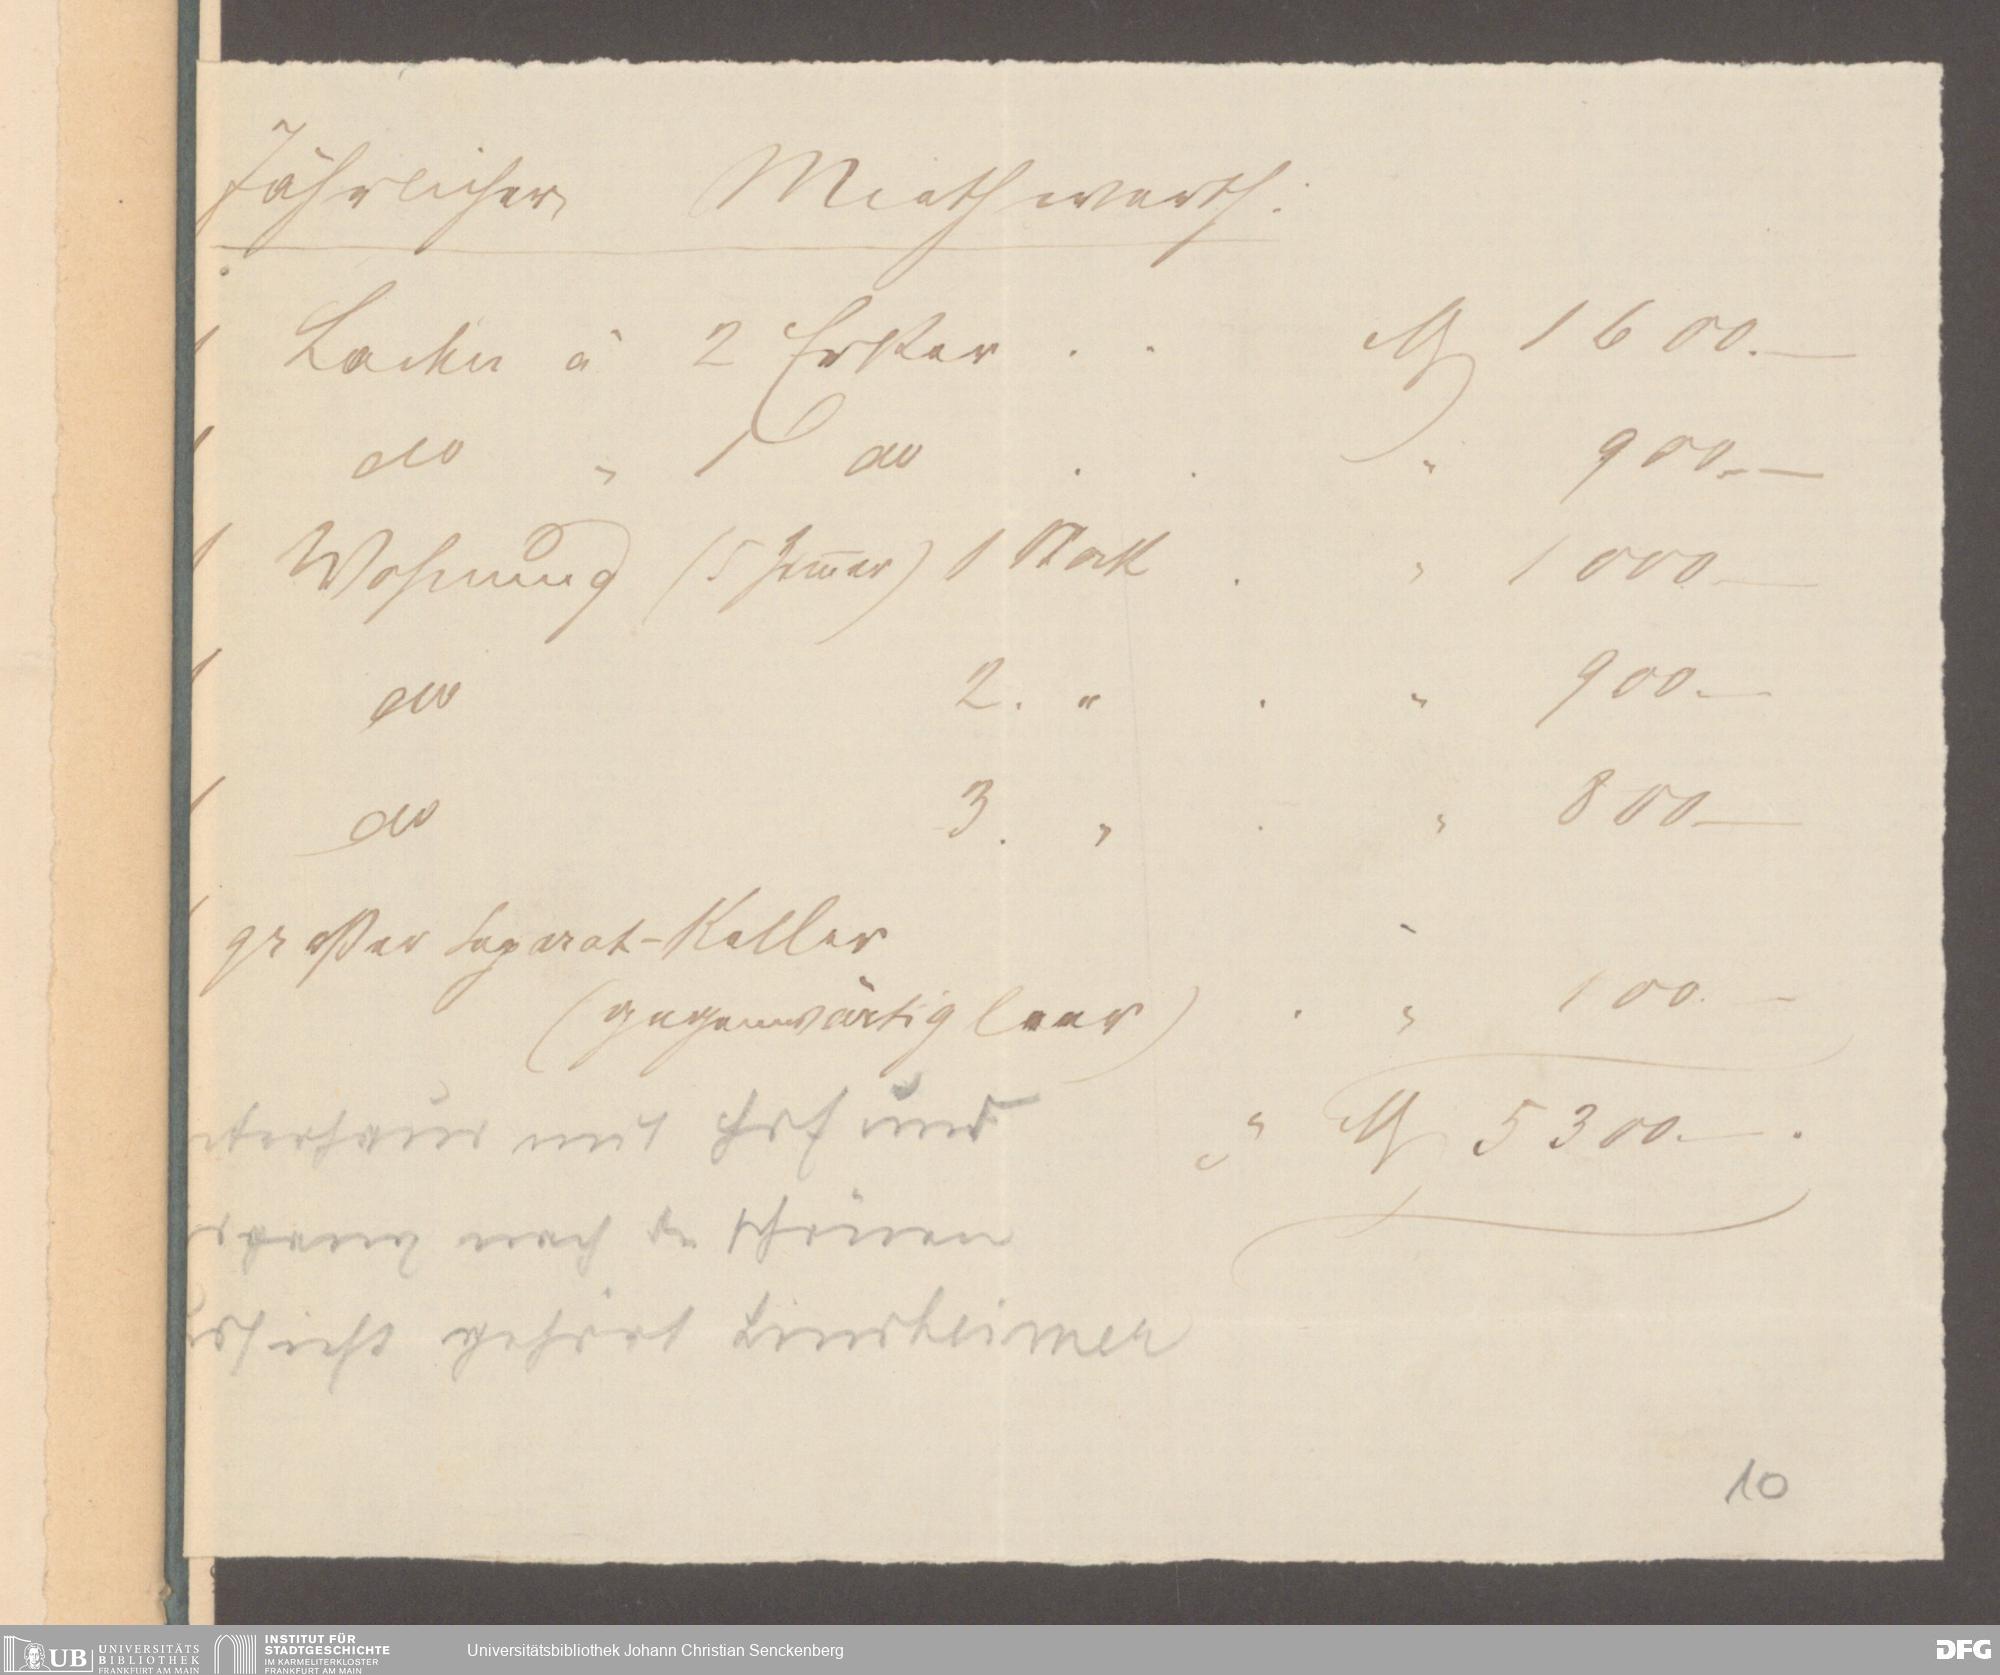 Jährlicher Miethwerth:
1 Laden à 2 Erker . . M 1600.—
1 do " 1 do . . " 900.—
1 Wohnung (5 Zimer) 1 Stock . " 1000—
1 do 2. " . " 900.—
1 do 3. " . " 800—
1 großer Separat-Keller
(gegenwärtig leer) . " 100.—
M 5300.—.
mit Hof und
nach
gehört Linsheimer
10
UB UNIVERSITÄTS
BIBLIOTHEK
FRANKFURT AM MAIN
INSTITUT FÜR
STADTGESCHICHTE
IM KARMELITERKLOSTER
FRANKFURT AM MAIN
Universitätsbibliothek Johann Christian Senckenberg
DFG